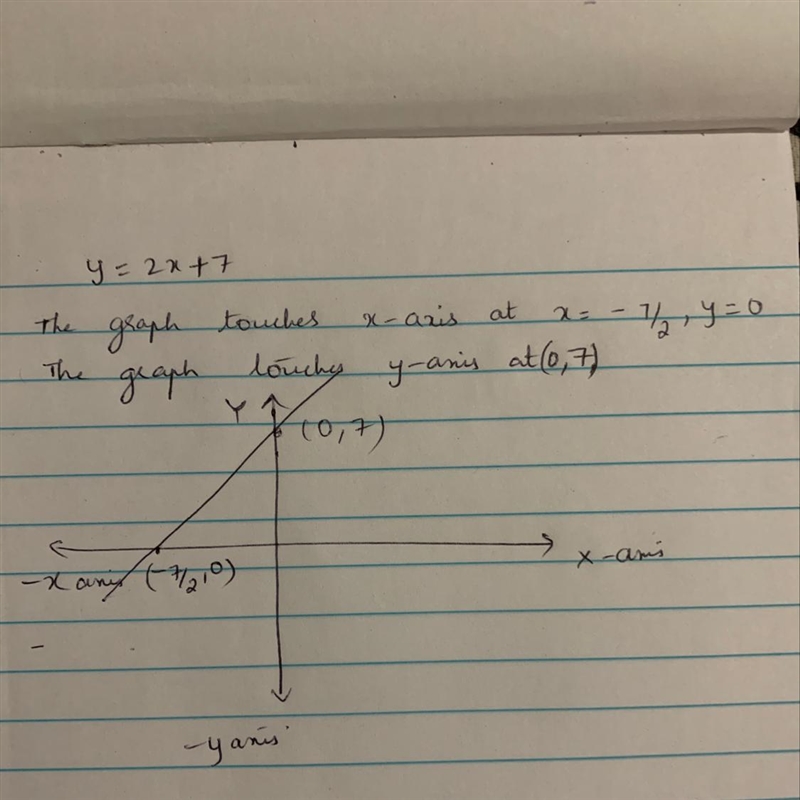 y = 2x+7
The graph touches x-axis at x = -7/2, y=0
The graph touches y-axis at (0,7)
Y
(0,7)
x-axis
-x axis (-7/2,0)
-y axis